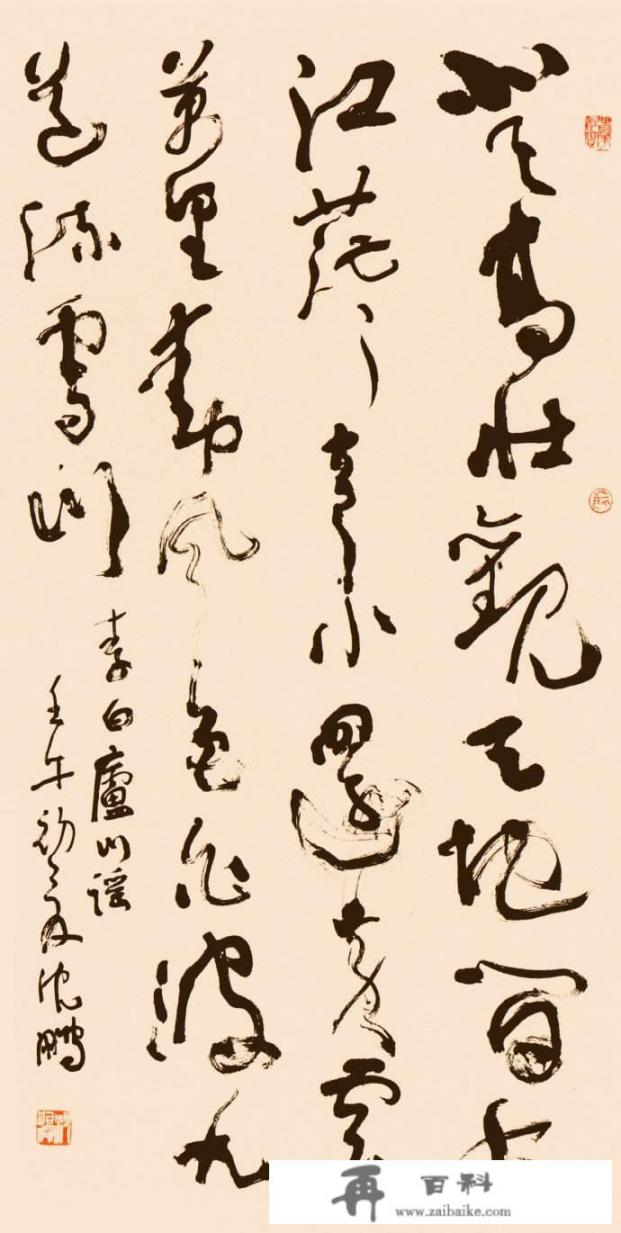 登高壯觀天地間大
江茫々去不還黃雲
萬里動風色白波九
道流雪山
李白廬山謠
壬午初夏沈鵬
再 百科
www.zaibaike.com